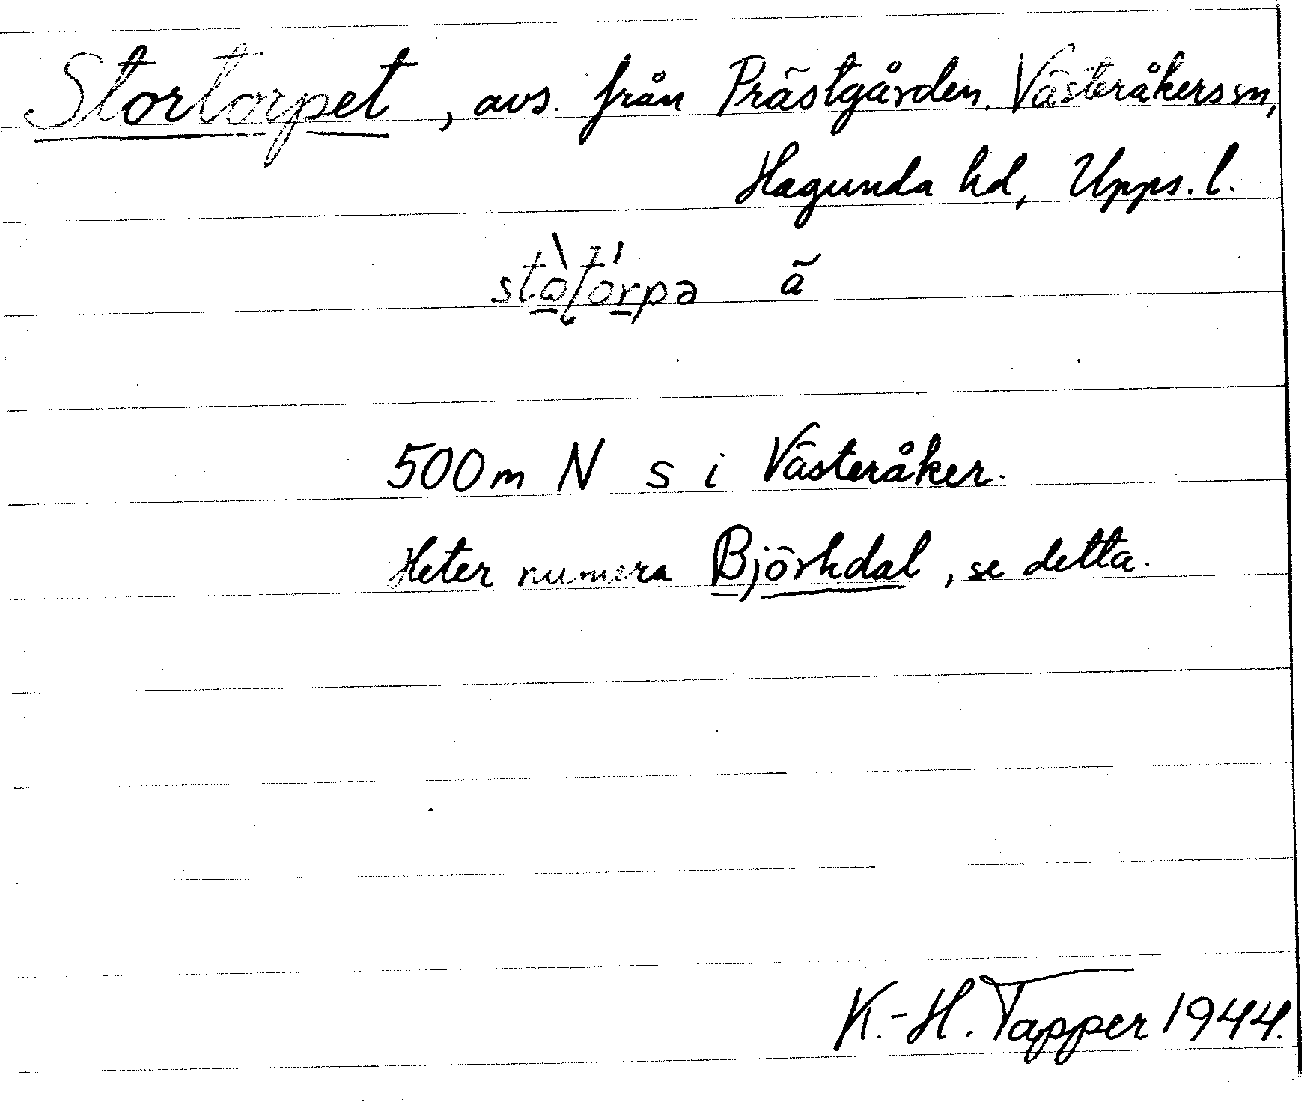 Stortorpet, avs. från Prästgården, Västeråkers sn,
Hagunda hd, Upps. l.
ä
500 m N s i Västeråker.
Heter numera Björkdal, se detta.
K.-H. Tapper 1944.